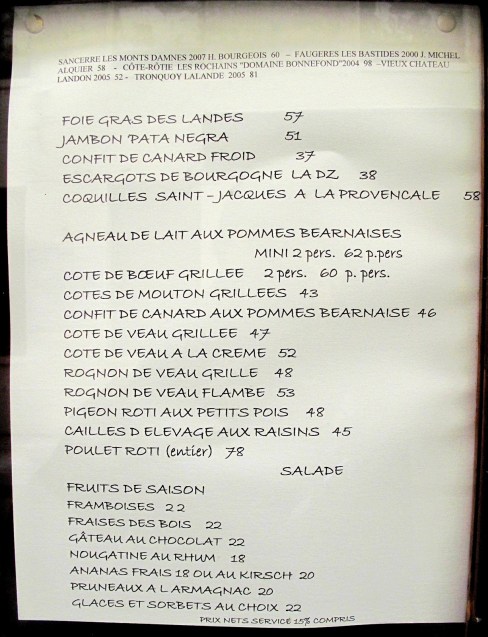 SANCERRE LES MONTS DAMNES 2007 H. BOURGEOIS 60 – FAUGERES LES BASTIDES 2000 J. MICHEL
ALQUIER 58 - CÔTE-RÔTIE LES ROCHAINS "DOMAINE BONNEFOND"2004 98 –VIEUX CHATEAU
LANDON 2005 52 - TRONQUOY LALANDE 2005 81
FOIE GRAS DES LANDES 57
JAMBON 'PATA NEGRA 51
CONFIT DE CANARD FROID 37
ESCARGOTS DE BOURGOGNE LA DZ 38
COQUILLES SAINT-JACQUES A LA PROVENCALE 58
AGNEAU DE LAIT AUX POMMES BEARNAISES
MINI 2 pers. 62 p.pers
COTE DE BŒUF GRILLEE 2 pers. 60 p. pers.
COTES DE MOUTON GRILLEES 43
CONFIT DE CANARD AUX POMMES BEARNAISE 46
COTE DE VEAU GRILLEE 47
COTE DE VEAU A LA CREME 52
ROGNON DE VEAU GRILLE 48
ROGNON DE VEAU FLAMBE 53
PIGEON ROTI AUX PETITS POIS 48
CAILLES D ELEVAGE AUX RAISINS 45
POULET ROTI (entier) 78
SALADE
FRUITS DE SAISON
FRAMBOISES 22
FRAISES DES BOIS 22
GÂTEAU AU CHOCOLAT 22
NOUGATINE AU RHUM 18
ANANAS FRAIS 18 OU AU KIRSCH 20
PRUNEAUX A L ARMAGNAC 20
GLACES ET SORBETS AU CHOIX 22
PRIX NETS SERVICE 15% COMPRIS